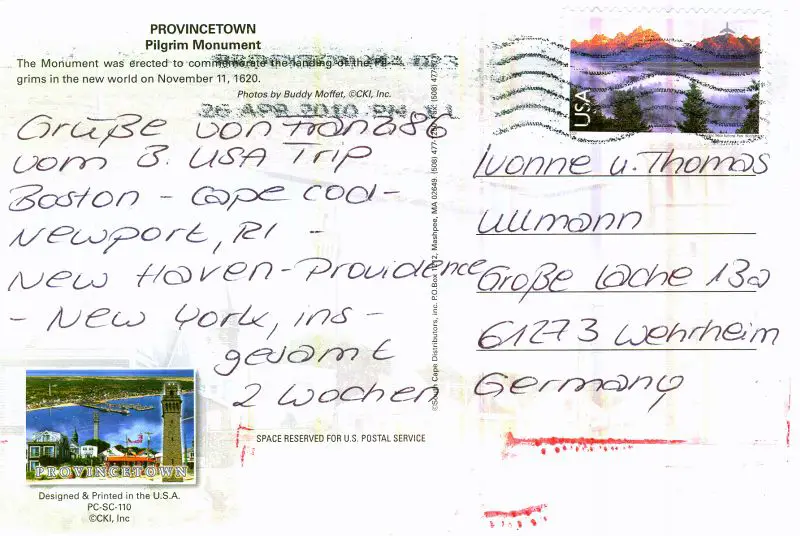 PROVINCETOWN
Pilgrim Monument
The Monument was erected to commemorate the landing of the Pil-
grims in the new world on November 11, 1620.
Photos by Buddy Moffet, ©CKI, Inc.
26 APR 2010 PM
USA
Grüße von
vom 3. USA Trip
Boston - Cape Cod -
Newport, RI -
New Haven - Providence
- New York, ins -
gesamt
2 Wochen
Ivonne u. Thomas
Ullmann
Große Lache 13a
61273 Wehrheim
Germany
©South Cape Distributors, inc. P.O.Box Mashpee, MA 02649. (508) 477-
SPACE RESERVED FOR U.S. POSTAL SERVICE
PROVINCETOWN
Designed & Printed in the U.S.A.
PC-SC-110
©CKI, Inc